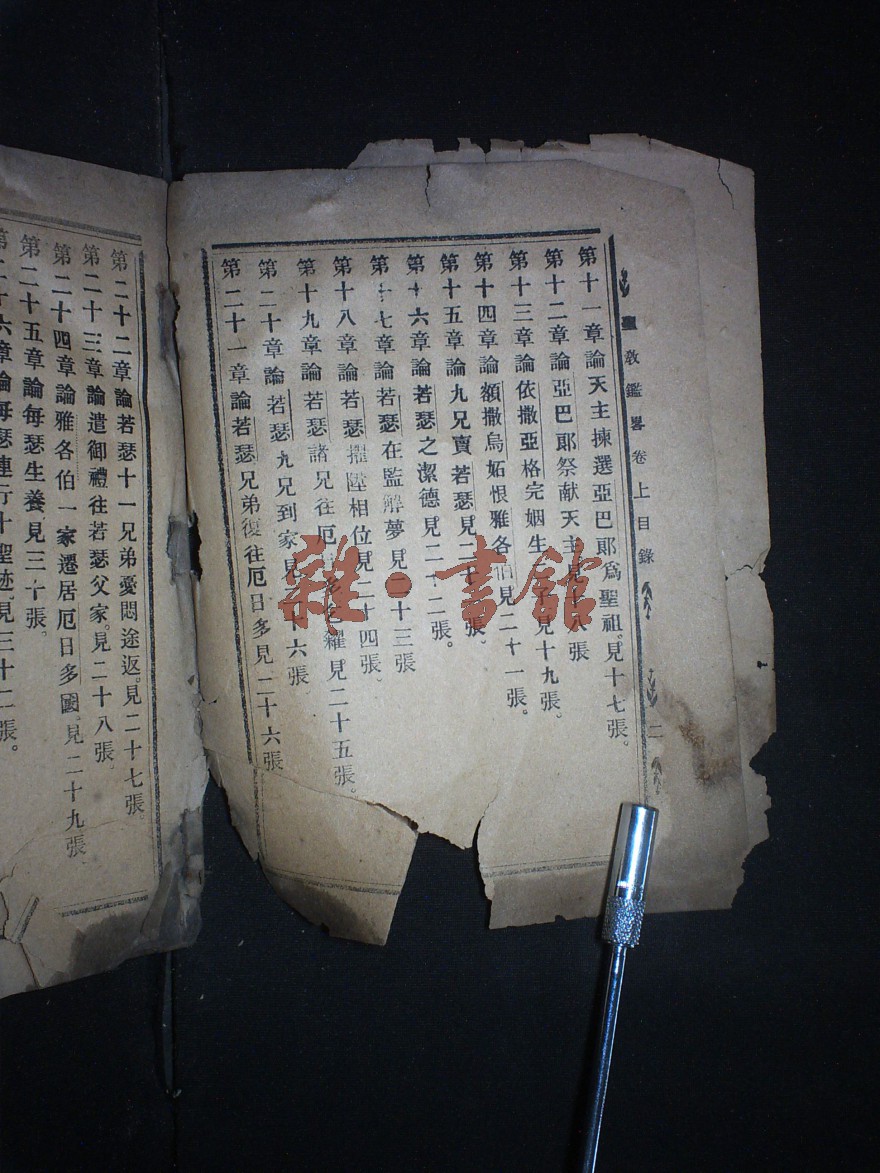 聖教鑑畧卷上目錄 二
第十一章論天主揀選亞巴郎爲聖祖。見十七張。
第十二章論亞巴郎祭献天主見十八張
第十三章論依撒亞格完姻生子見十九張。
第十四章論額撒烏妬恨雅各伯見二十一張。
第十五章論九兄賣若瑟見二十張。
第十六章論若瑟之潔德見二十二張。
第十七章論若瑟在監解夢見二十三張
第十八章論若瑟擢陞相位見二十四張。
第十九章論若瑟諸兄往厄日多糴見二十五張。
第二十章論若瑟九兄到家見二十六張
第二十一章論若瑟兄弟復往厄日多見二十六張
第二十二章論若瑟十一兄弟憂悶途返。見二十七張。
第二十三章論遣御禮往若瑟父家。見二十八張。
第二十四章論雅各伯一家遷居厄日多國。見二十九張
第二十五章論每瑟生養見三十張。
第二十六章論每瑟連行十聖迹見三十二張。
雜·書館